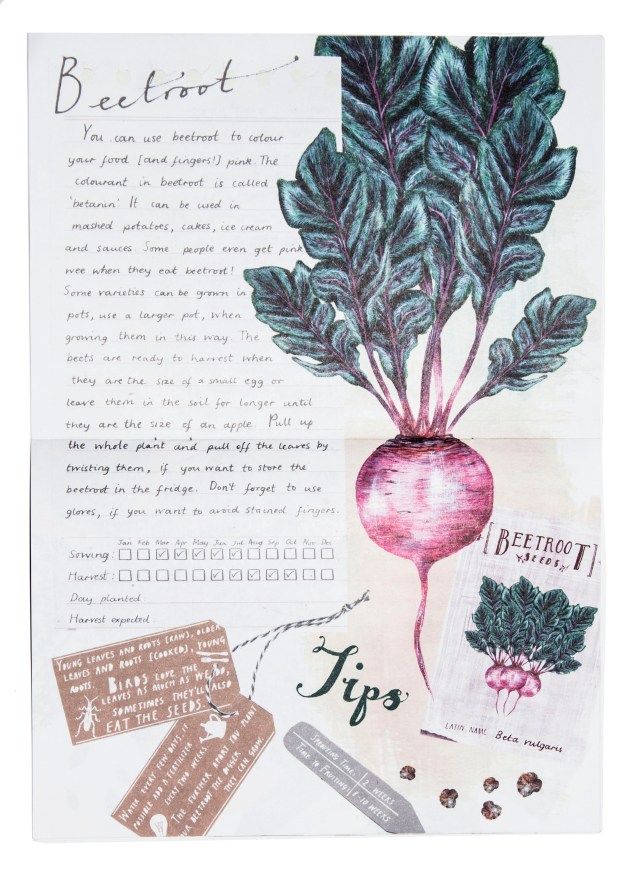 Beetroot
You can use beetroot to colour
your food [and fingers!] pink. The
colourant in beetroot is called
'betanin'. It can be used in
mashed potatoes, cakes, ice cream
and sauces. Some people even get pink
wee when they eat beetroot!
Some varieties can be grown in
pots, use a larger pot, when
growing them in this way. The
beets are ready to harvest when
they are the size of a small egg or
leave them in the soil for longer until
they are the size of an apple. Pull up
the whole plant and pull off the leaves by
twisting them, if you want to store the
beetroot in the fridge. Don't forget to use
gloves, if you want to avoid stained fingers.
Jan Feb Mar Apr May Jun Jul Aug Sep Oct Nov Dec
Sowing:
Harvest:
Day planted
Harvest expected
[BEETROOT]
SEEDS
LATIN NAME Beta vulgaris
YOUNG LEAVES AND ROOTS (RAW), OLDER
LEAVES AND ROOTS (COOKED), YOUNG
ROOTS. BIRDS LOVE THE
LEAVES AS MUCH AS WE DO,
SOMETIMES THEY'LL ALSO
EAT THE SEEDS.
Tips
WATER EVERY FEW DAYS, IF
POSSIBLE ADD A FERTILIZER
EVERY TWO WEEKS.
THE FURTHER APART YOU PLANT
YOUR BEETROOT THE BIGGER
THEY CAN GROW.
SPROUTING TIME: 2 WEEKS
TIME TO FRUITING: 8-10 WEEKS